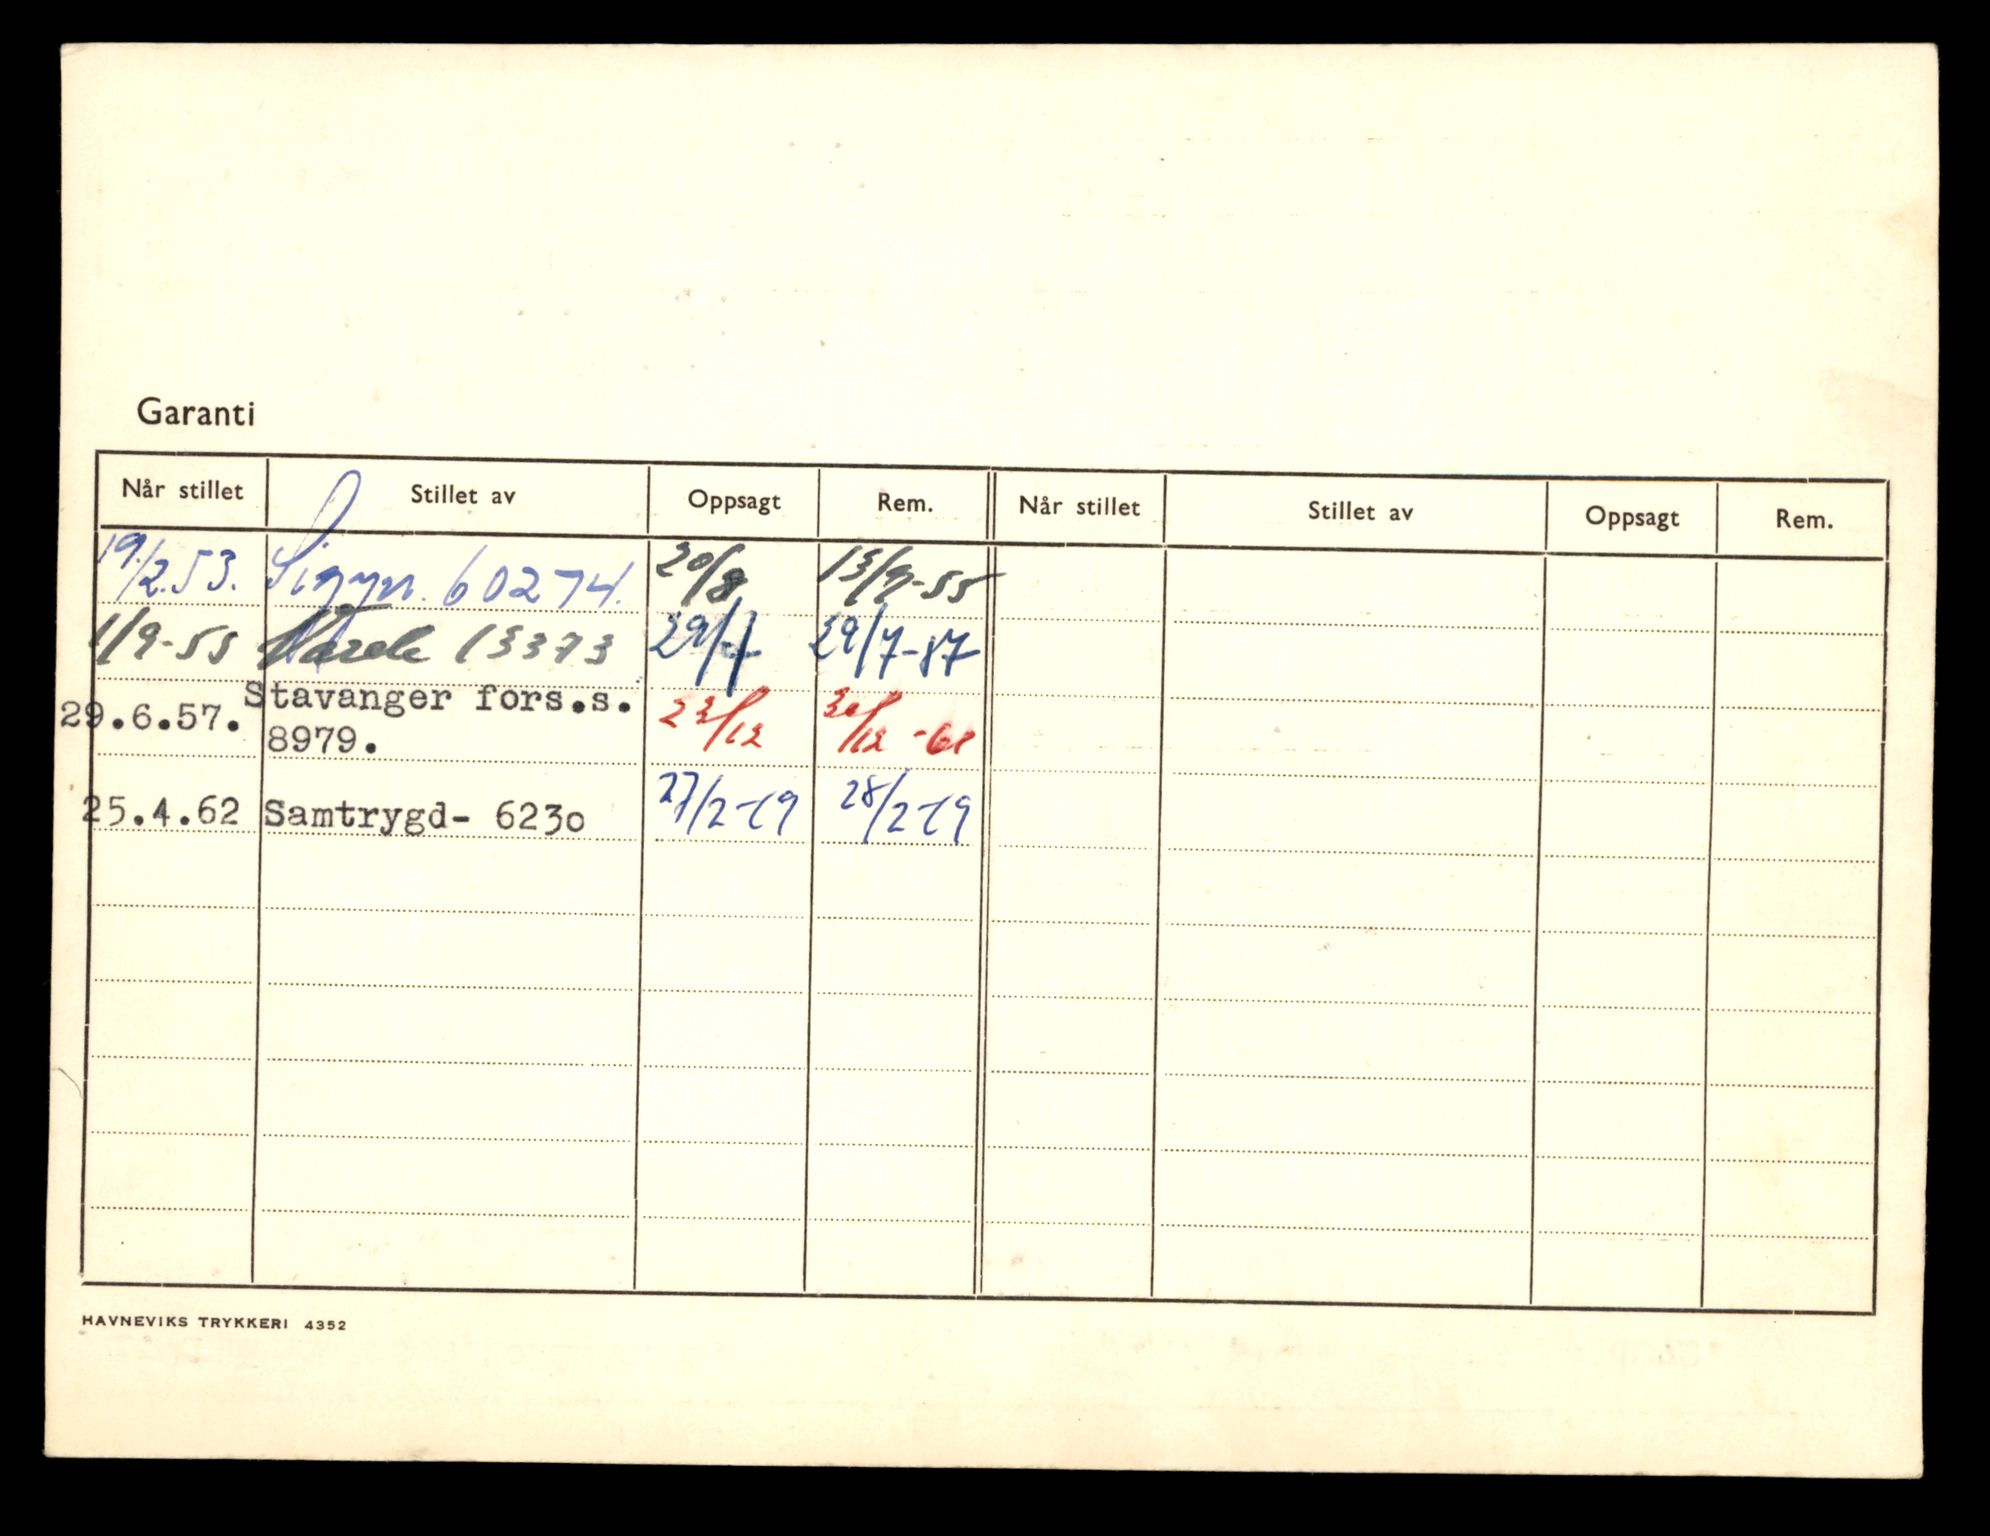 Garanti
Når stillet Stillet av Oppsagt Rem. Når stillet Stillet av Oppsagt Rem.
19/2.53. Sigyn. 60274. 20/8 13/9-55
1/9-55 Norde 13373 29/7 29/7-57
29.6.57. Stavanger fors.s. 23/12 30/12-61
8979.
25.4.62 Samtrygd- 6230 27/2-69 28/2-69
HAVNEVIKS TRYKKERI 4352